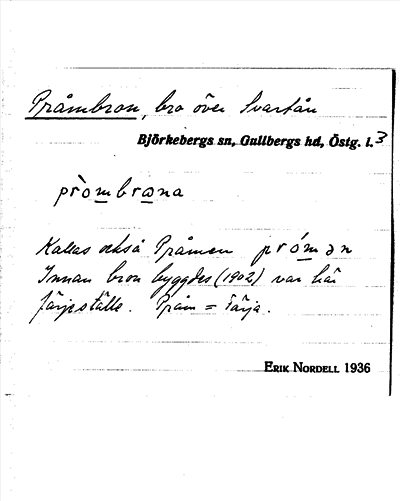 Pråmbron, bro över Svartån
Björkebergs sn, Gullbergs hd, Östg. l. 3
pròmbrona
Kallas också Pråmen próm ən
Innan bron byggdes (1902) var här
färjställe. Pråm = Färja.
ERIK NORDELL 1936